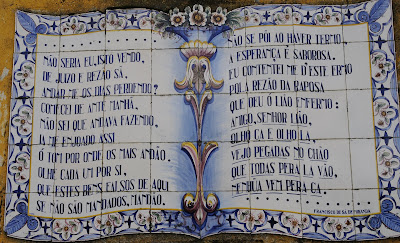 NÃO SERIA EU, ISTO VENDO,
DE JUIZO E REZÃO SÃ,
ANDAR-ME OS DIAS PERDENDO?
COMECEI DE ANTE MANHÃ,
NÃO SEI QUE ANDAVA FAZENDO,
JA ME ENJOADO ASSI
O TOM POR ONDE OS MAIS ANDÃO.
OLHE CADA UM POR SI,
QUE ESTES BENS FALSOS DE AQUI
SE NÃO SÃO MANDADOS, MANDÃO.
NÃO SE PÔI AO HAVER TERMO,
A ESPERANÇA É SABOROSA.
EU CONTENTEI ME D'ESTE ERMO
POL A REZÃO DA RAPOSA
QUE DEU O LIÃO ENFERMO:
AMIGO, SENHOR LIÃO,
OLHO CA E OLHO LA,
VEJO PEGADAS NO CHÃO
QUE TODAS PERA LA VÃO,
NENHŨA VEM PERA CA.
FRANCISCO DE SÁ DE MIRANDA